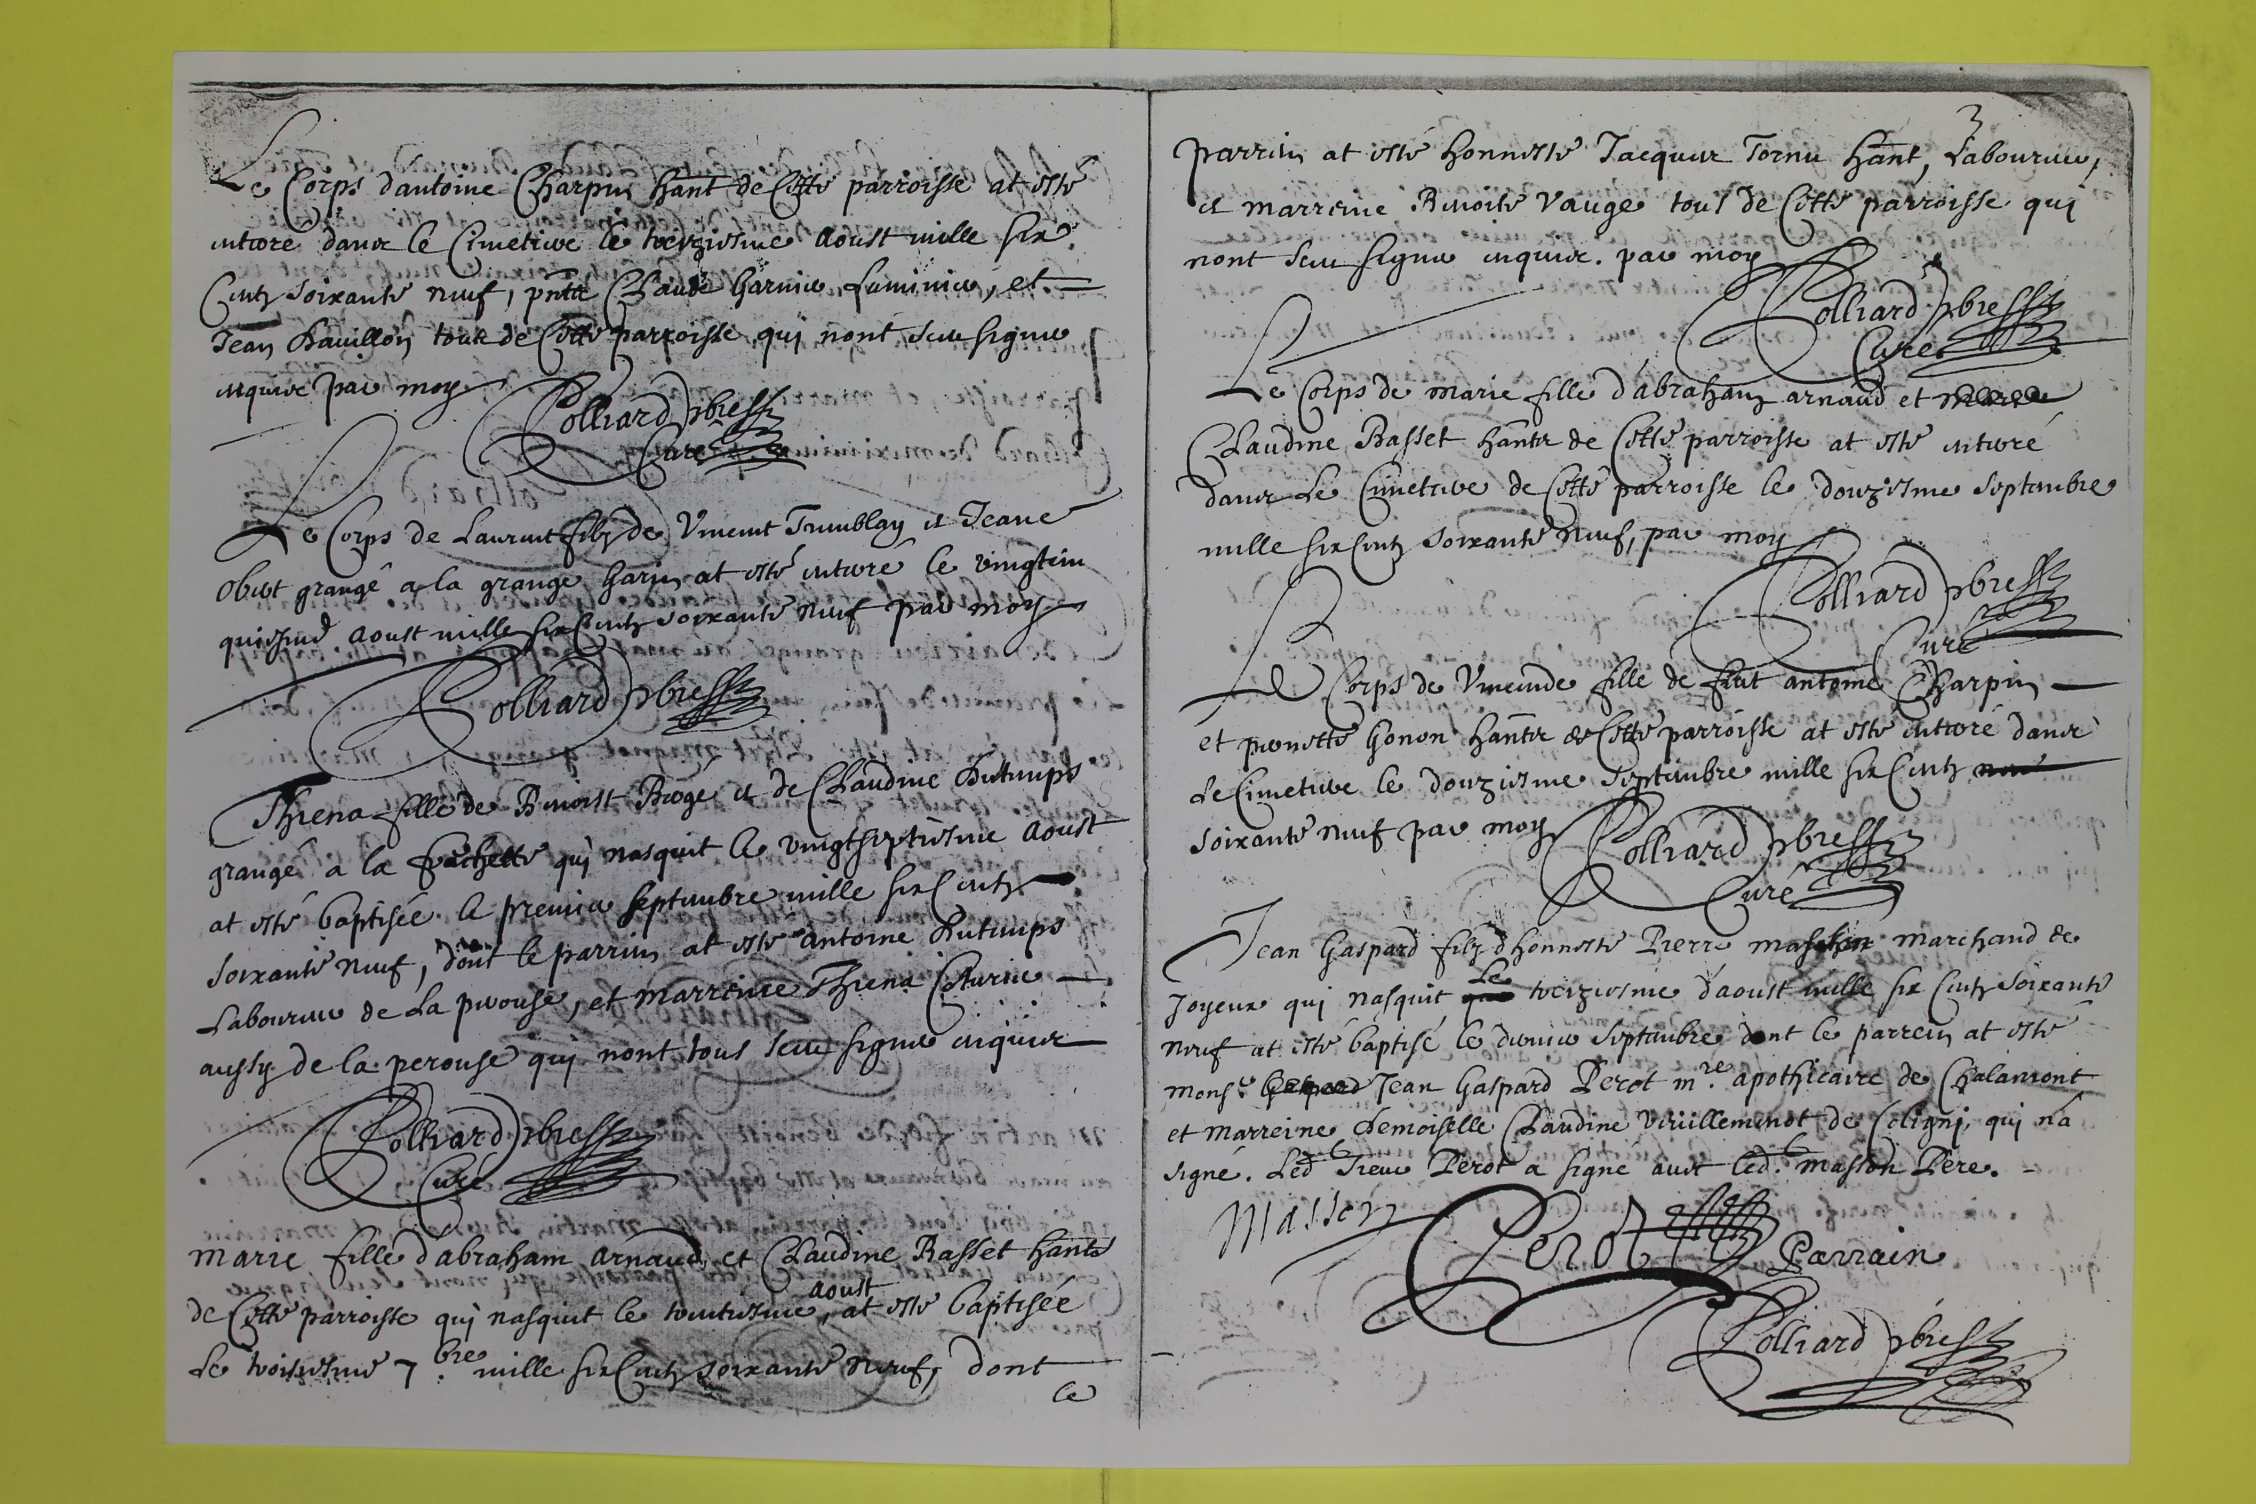 Le Corps dantoine Charpin hant de Cette parroisse at esté
enterré dans le Cimetiere le treiziesme Aoust mille six
Centz soixante neuf, pnts Claude Garnier Luminier, et
Jean Chavillon tous de Cette parroisse qui nont sceu signer
enquis par moy
Colliard pbre
Curé
Le Corps de Laurent filz de Vincent Tremblay et Jeane
Obert grangé a la grange Garin at esté enterré le vingtcin
quiesme aoust mille six Centz soixante neuf par moy
Colliard pbre
Thiena fille de Benoist Brogé et de Claudine Dutemps
grangé a la qui nasquit le vingtseptiesme Aoust
at esté baptisée le premier septembre mille six Centz
soixante neuf, dont le parrin at esté Antoine Dutemps
Laboureur de La perouse, et marreine Thiena
aussy de la perouse qui nont tous sceu signer enquis
Colliard pbre
Curé
Marie fille d'abraham arnaud et Claudine Basset hants
de Cette parroisse qui nasquit le trentiesme aoust, at esté baptisée
Le troisiesme 7.bre mille six Centz soixante neuf, dont
le
3
parrin at esté honneste Jacques Tornu hant, Laboureur,
et marreine Benoite Vauge tous de Cette parroisse qui
nont sceu signer enquis. par moy
Colliard pbre
Curé
Le Corps de marie fille d'abraham arnaud et
Claudine Basset hants de Cette parroisse at esté enterré
dans Le Cimetiere de Cette parroisse le douziesme Septembre
mille six Centz soixante neuf, par moy
Colliard pbre
Curé
Le Corps de Vincende fille de feut antoine Charpin
et pernette Gonon hants de Cette parroisse at esté enterré dans
Le Cimetiere le douziesme Septembre mille six Centz
soixante neuf par moy
Colliard pbre
Curé
Jean Gaspard filz d'honneste Pierre masson marchand de
Joyeux qui nasquit Le treiziesme d'aoust mille six Centz soixante
neuf at esté baptisé le dernier Septembre dont le parrein at esté
Monsr. Jean Gaspard Perot mre. apothicaire de Chalamont
et Marreine Demoiselle Claudine Vuillemenot de Coligni, qui n'a
signé. Led. Sieur Perot a signé avec led. masson Pere.
Masson
Perot Parrain
Colliard pbre